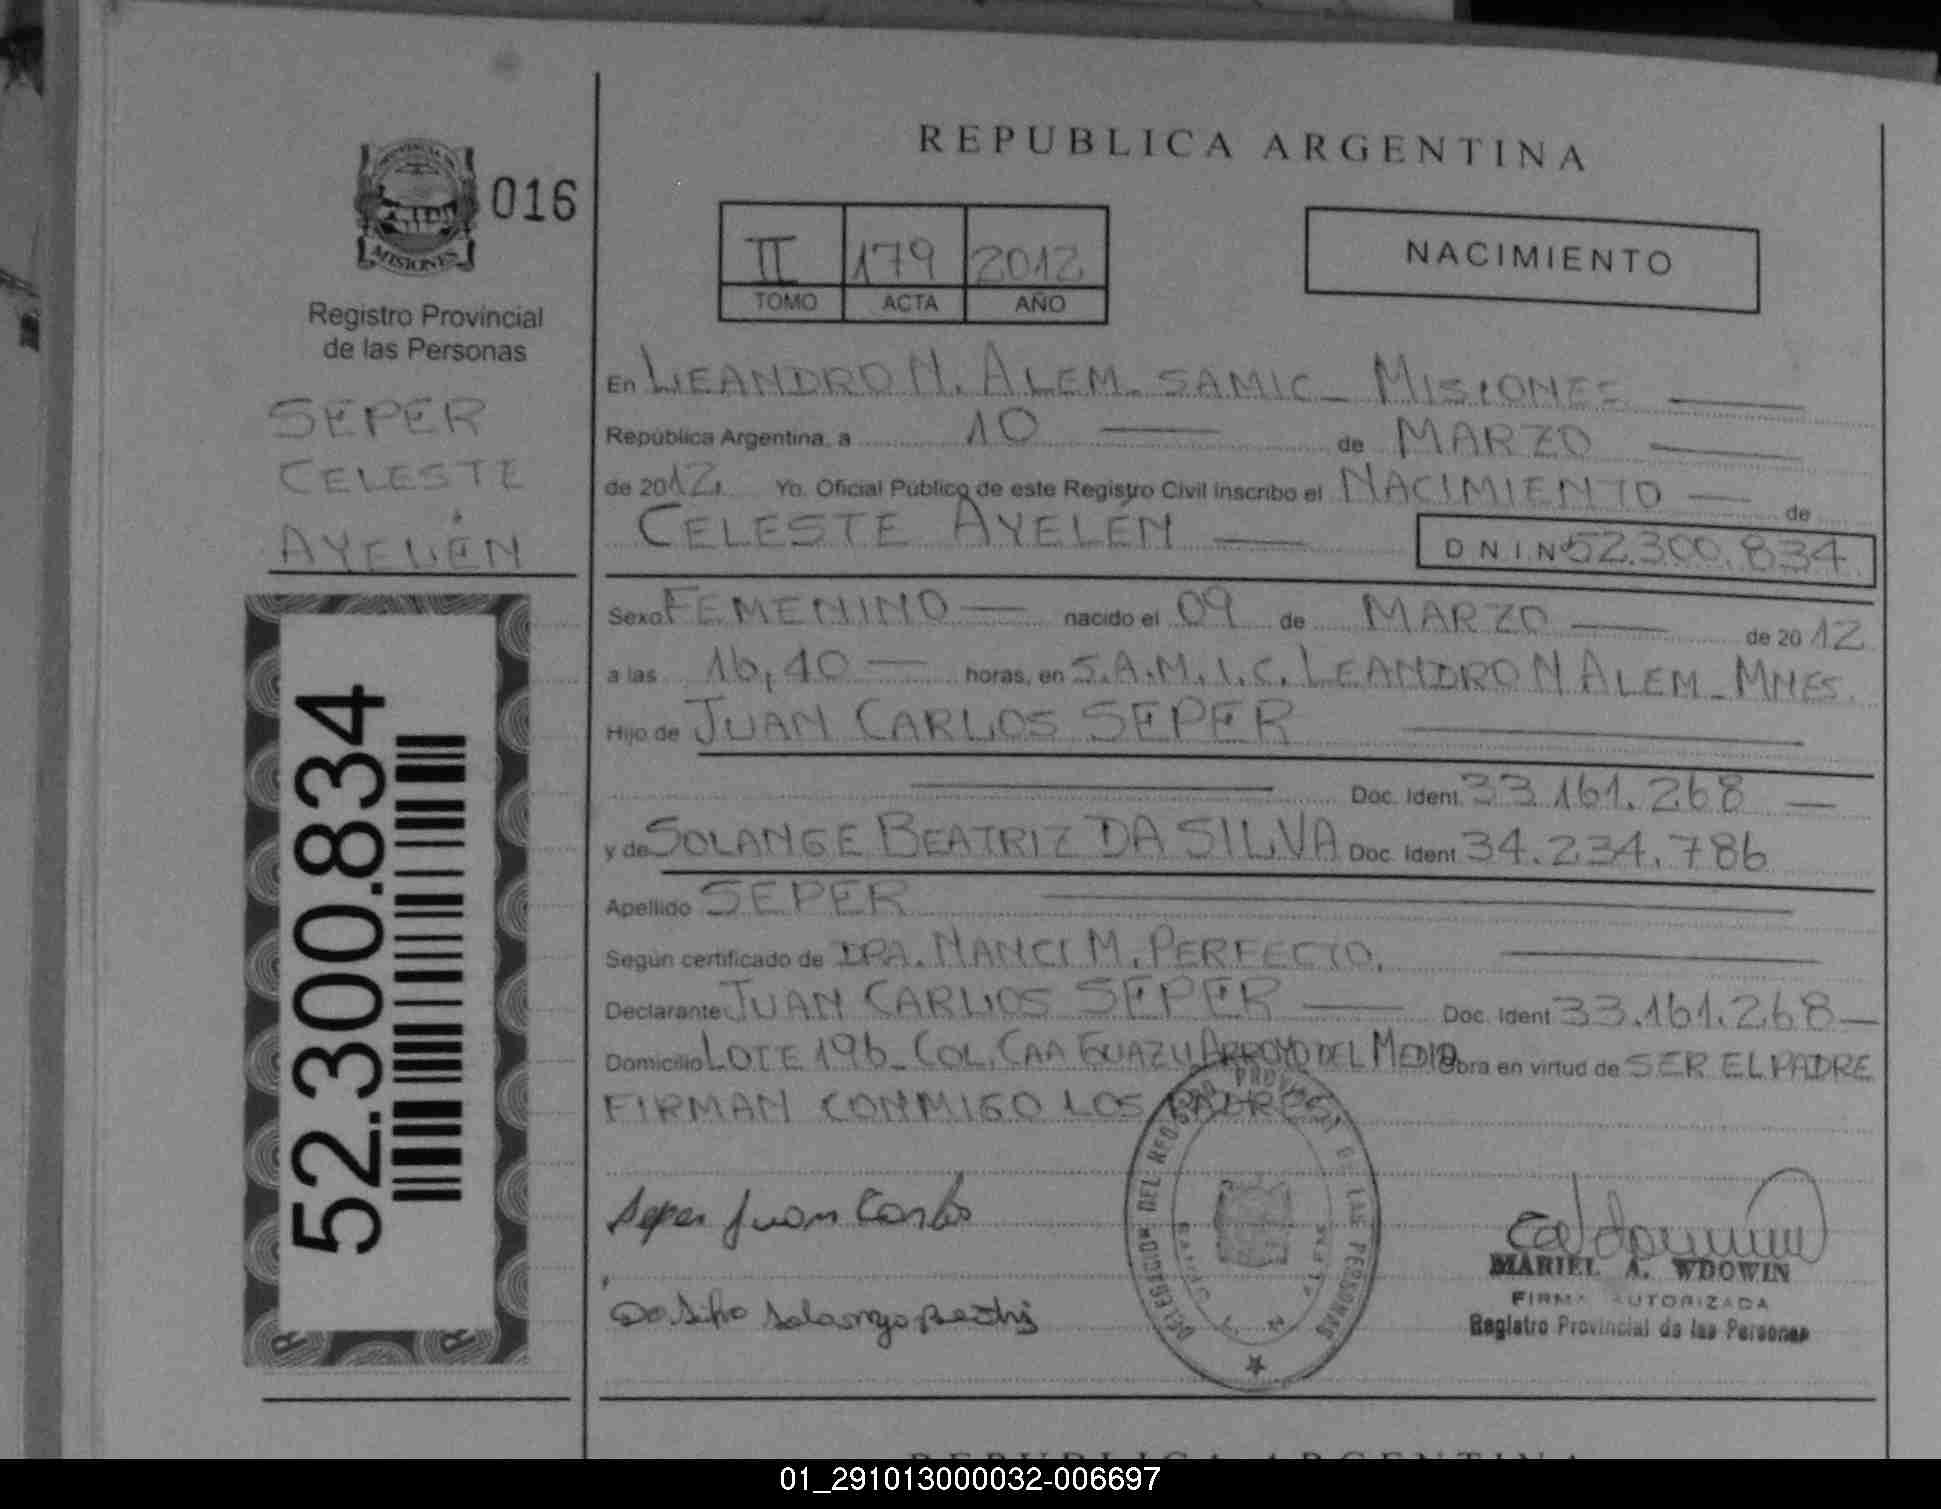 REPUBLICA ARGENTINA
MISIONES
016
Registro Provincial
de las Personas
SEPER
CELESTE
AYELÉN
52.300.834
II 179 2012
TOMO ACTA AÑO
NACIMIENTO
En LEANDRO N. ALEM. SAMIC - MISIONES
República Argentina, a 10 de MARZO
de 2012. Yo. Oficial Público de este Registro Civil inscribo el NACIMIENTO de
CELESTE AYELÉN D N I N° 52.300.834
Sexo FEMENINO nacido el 09 de MARZO de 2012
a las 16,40 horas, en S.A.M.I.C. LEANDRO N ALEM - MNES.
Hijo de JUAN CARLOS SEPER
Doc. Ident. 33.161.268
y de SOLANGE BEATRIZ DA SILVA Doc. Ident 34.234.786
Apellido SEPER
Según certificado de DRA. NANCI M. PERFECTO.
Declarante JUAN CARLOS SEPER Doc. Ident 33.161.268
Domicilio LOTE 196 - COL. CAA GUAZU ARROYO DEL MEDIO Obra en virtud de SER EL PADRE
FIRMAN CONMIGO LOS PADRES
Seper Juan Carlos
Da Silva Solange Beatriz
DEL REGISTRO PROVINCIAL DE LAS PERSONAS
MARIEL A. WDOWIN
FIRMA AUTORIZADA
Registro Provincial de las Personas
REPUBLICA ARGENTINA
01_291013000032-006697